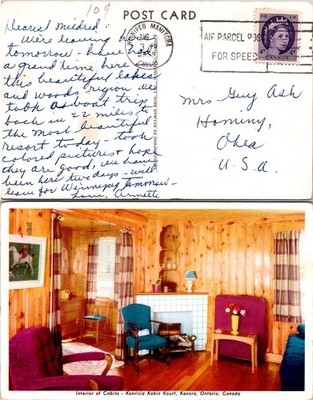 10¢
POST CARD
Dearest Mildred:
We're leaving here
tomorrow - have had
a grand time here in
this beautiful lakes
and woods region. We
took a boat trip
back in 22 miles to
the most beautiful
resort today - took
colored pictures & hope
they are good, we have
been here two days - will
leave for Winnipeg tomorrow -
Love, Annette
MANITOBA
AIR PARCEL POST
FOR SPEED
Mrs Guy Ash
Hominy,
Okla
U.S.A.
Interior of Cabins - Kenricia Kabin Kourt, Kenora, Ontario, Canada